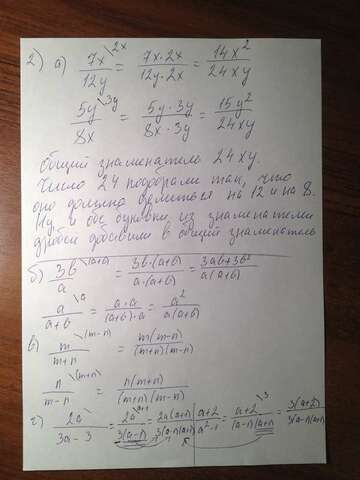 2) а) 7x/12y \2x = 7x·2x/12y·2x = 14x²/24xy
5y/8x \3y = 5y·3y/8x·3y = 15y²/24xy
Общий знаменатель 24xy.
Число 24 подобрали так, что
оно должно делиться на 12 и на 8.
Ну и обе из знаменателя
дробей добавили в общий знаменатель
б) 3b/a \(a+b) = 3b·(a+b)/a·(a+b) = 3ab+3b²/a(a+b)
a/a+b \a = a·a/(a+b)·a = a²/a(a+b)
в) m/m+n \(m-n) = m(m-n)/(m+n)(m-n)
n/m-n \(m+n) = n(m+n)/(m+n)(m-n)
г) 2a/3a-3 = 2a/3(a-1) \a+1 = 2a(a+1)/3(a-1)(a+1) | a+2/a²-1 = a+2/(a-1)(a+1) \3 = 3(a+2)/3(a-1)(a+1)